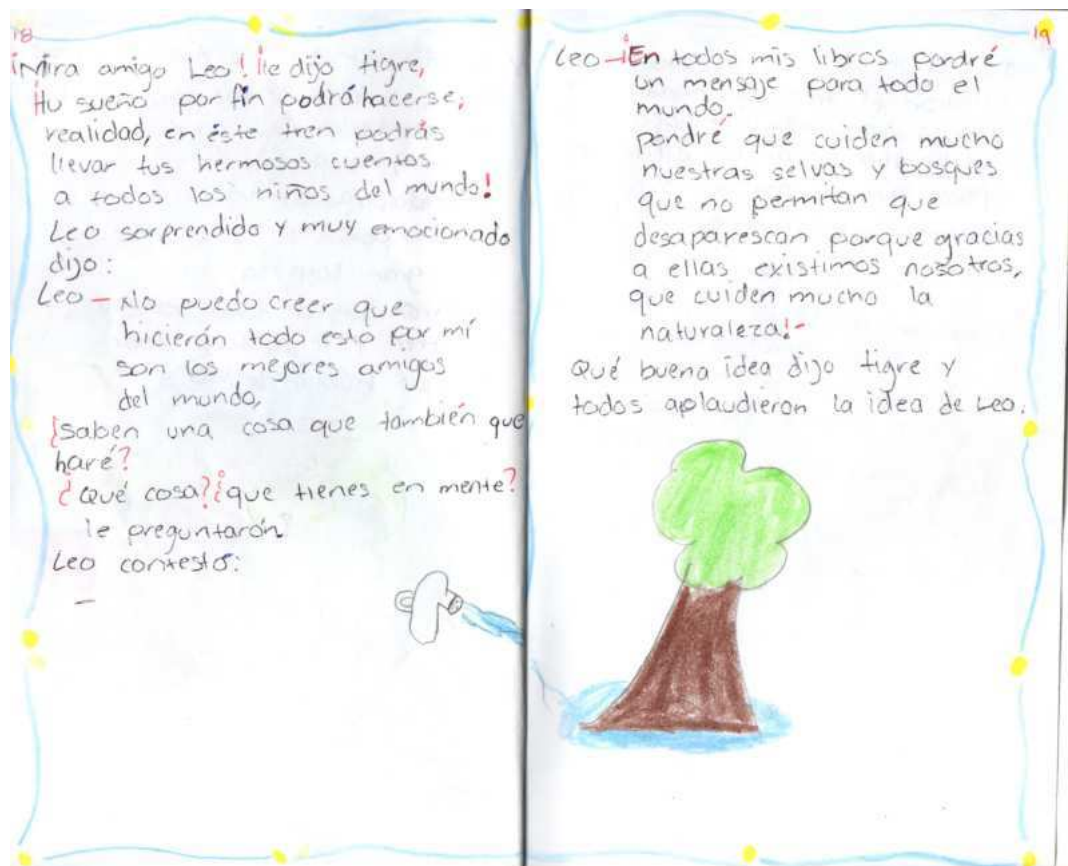 18
¡Mira amigo Leo! ¡le dijo tigre,
¡tu sueño por fin podrá hacerse;
realidad, en éste tren podrás
llevar tus hermosos cuentos
a todos los niños del mundo!
Leo sorprendido y muy emocionado
dijo:
Leo - No puedo creer que
hicierán todo esto por mí
son los mejores amigos
del mundo,
¿saben una cosa que también que
haré?
¿Qué cosa? ¿que tienes en mente?
le preguntarón
Leo contestó:
-
19
Leo - ¡En todos mis libros pondré
un mensaje para todo el
mundo.
pondré que cuiden mucho
nuestras selvas y bosques
que no permitan que
desaparescan porque gracias
a ellas existimos nosotros,
que cuiden mucho la
naturaleza!-
Qué buena idea dijo tigre y
todos aplaudieron la idea de Leo.